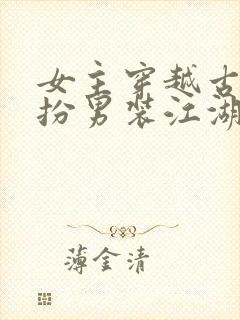 女主穿越古
扮男装江湖
薄金清